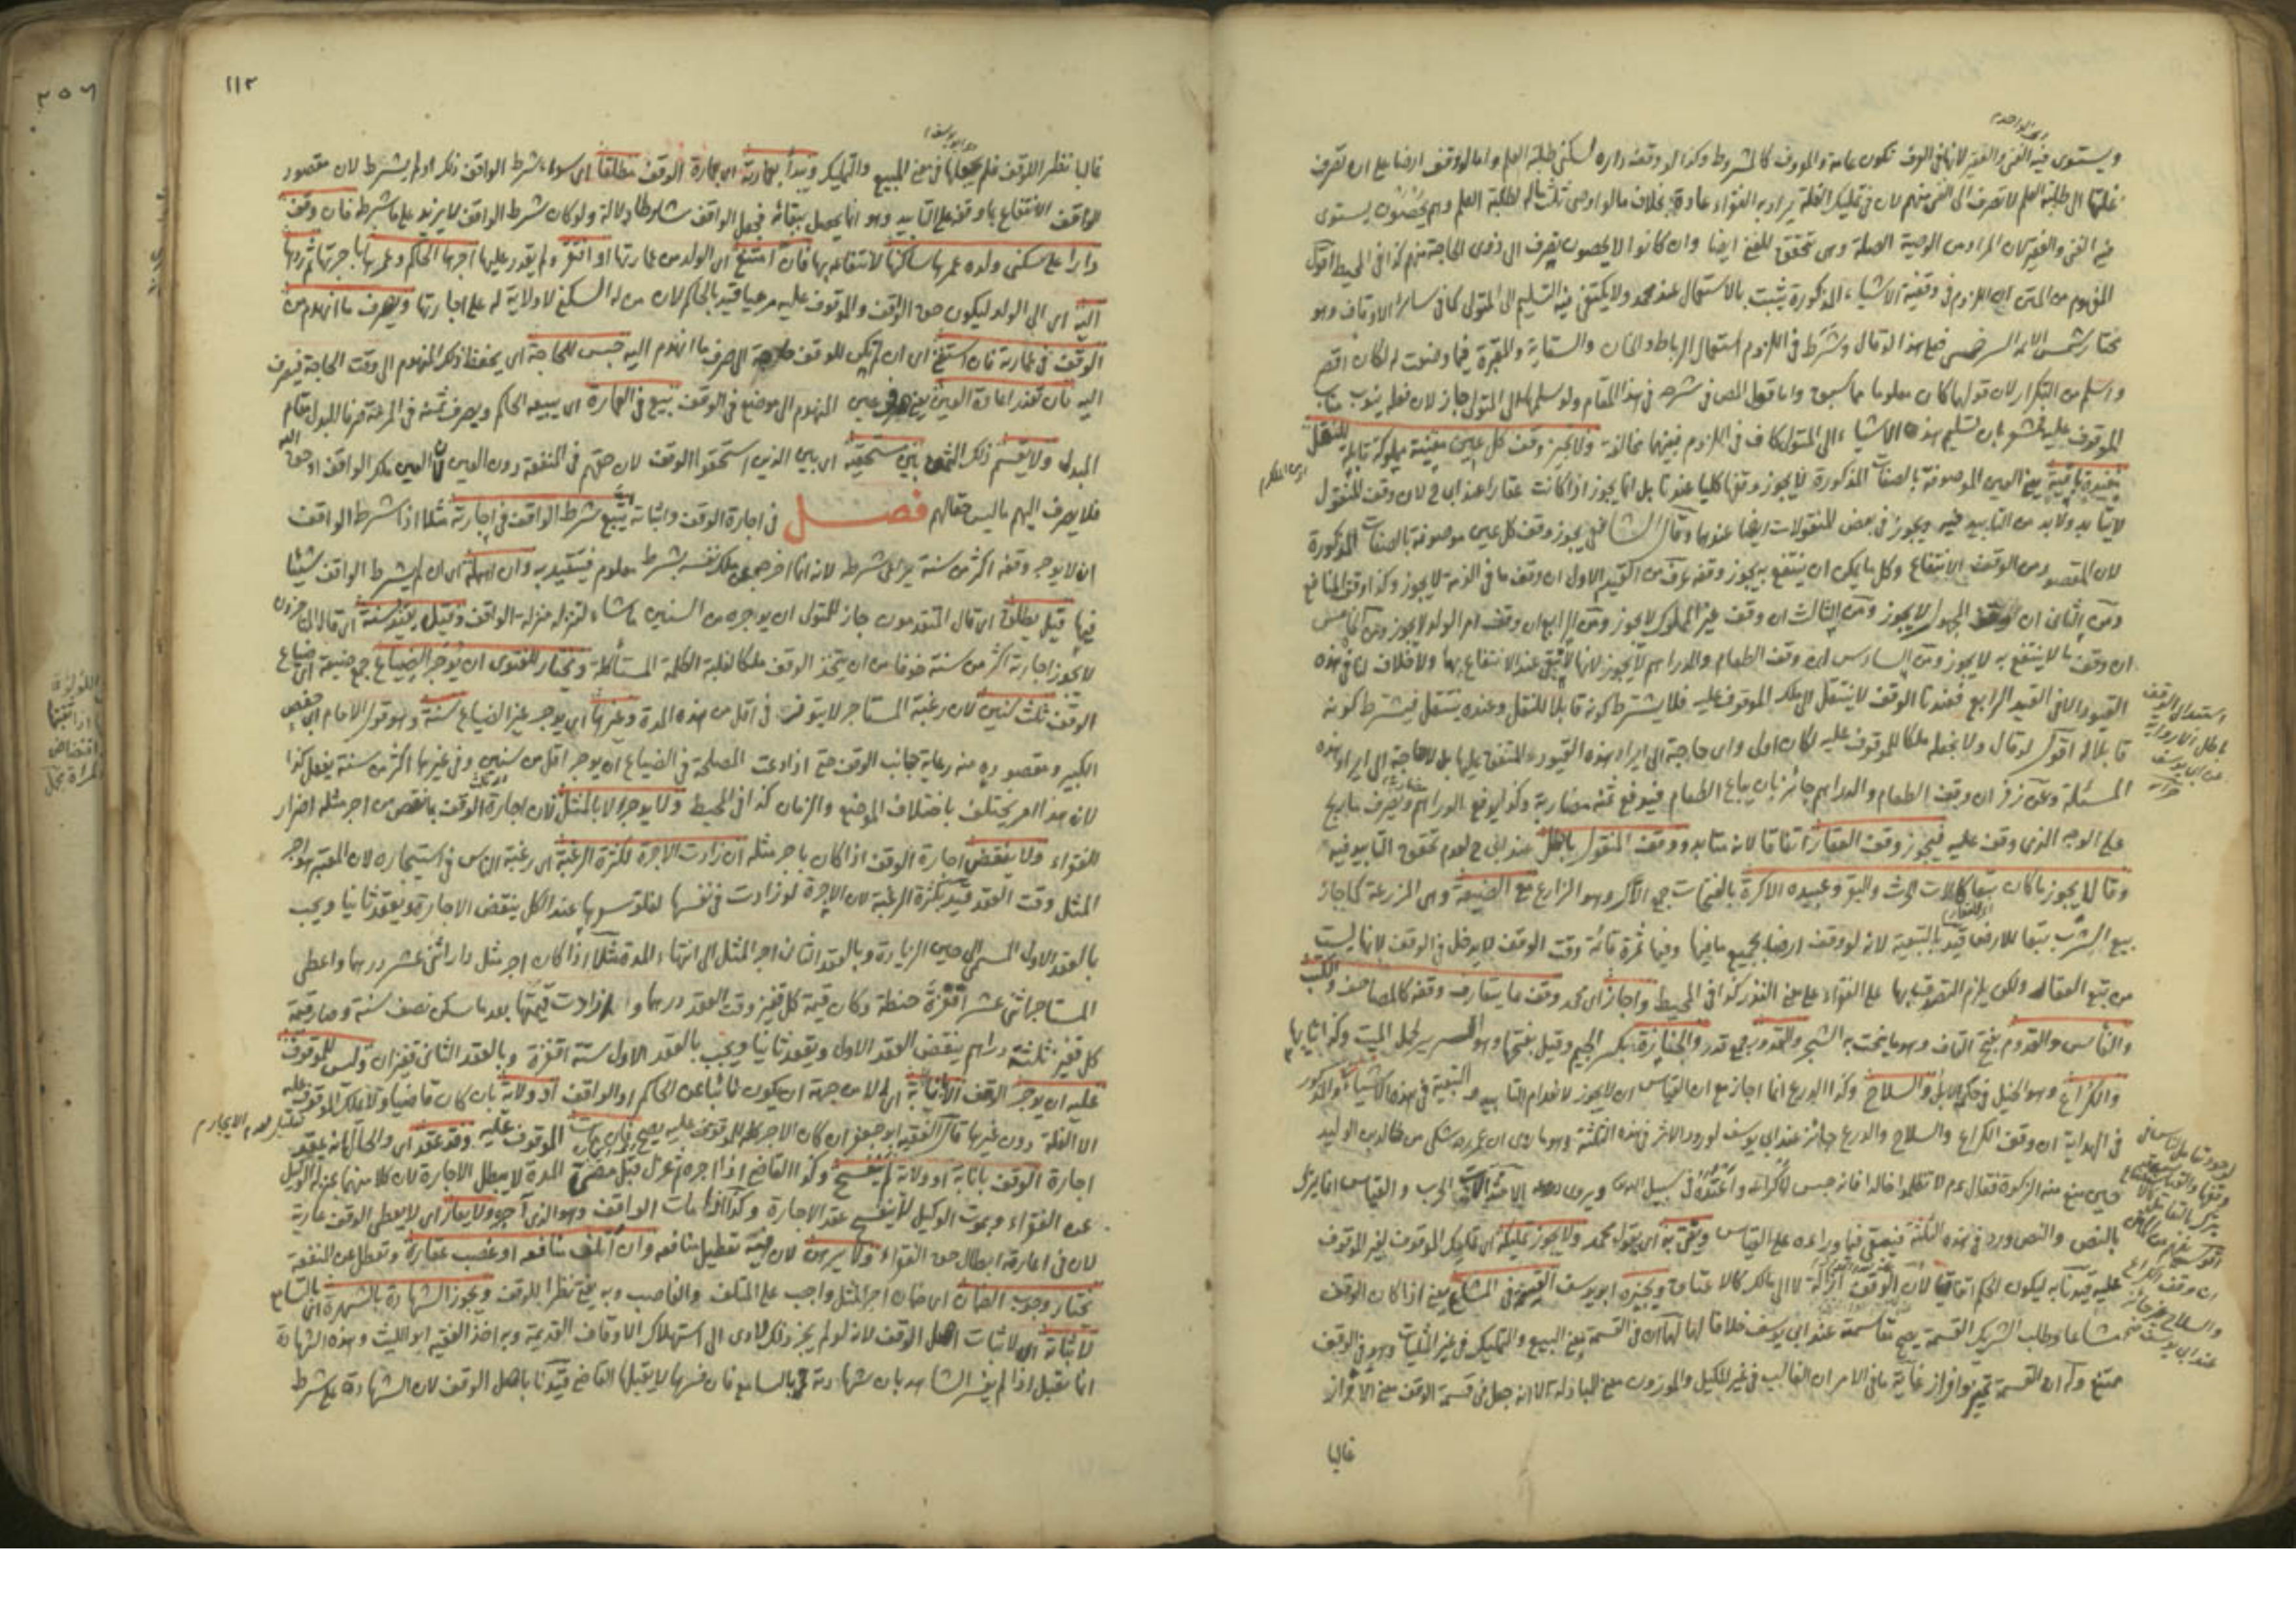 ويستوى فيه الغنى والفقير لانها فى العرف تكون عامة والمعروف كالمشروط وكذا لو وقف داره لسكنى طلبة العلم واما لو وقف ارضا على ان تصرف
غلتها الى طلبة العلم لا تصرف الى الغنى منهم لان فى تمليك الغلة يراد به الفقراء عادة بخلاف ما لو اوصى بثلث ماله لطلبة العلم وهم يحصون يستوى
فيه الغنى والفقير لان المراد من الوصية الصلة وهى تتحقق للغنى ايضا وان كانوا لا يحصون يصرف الى ذوى الحاجة منهم كذا فى المحيط اقول
المفهوم من المتن ان اللزوم فى وقفية الاشياء المذكورة يثبت بالاستعمال عند محمد ولا يكتفى فيه التسليم الى المتولى كما فى سائر الاوقاف وهو
مختار شمس الائمة السرخسى فعلى هذا لو قال وشرط فى اللزوم استعمال الرباط والخان والسقاية والمقبرة فيما وضعت له لكان اقصر
واسلم من التكرار لان قولهما كان معلوما مما سبق واما قول المص فى شرحه فى هذا المقام ولو سلمها الى المتولى جاز لان فعله ينوب مناب
الموقوف عليه فمشعر بان تسليم هذه الاشياء الى المتولى كاف فى اللزوم فبينهما مخالفة ولا يجيز وقف كل عين معينة مملوكة قابلة للنقل
مفيدة باقية يعنى العين الموصوفة بالصفات المذكورة لا يجوز وقفها كليا عندنا بل انما يجوز اذا كانت عقارا عند ابى ح لان وقف المنقول
لا يتأبد ولا بد من التأبيد فيه ويجوز فى بعض المنقولات ايضا عندهما وقال الشافعى يجوز وقف كل عين موصوفة بالصفات المذكورة
لان المقصود من الوقف الانتفاع وكل ما يمكن ان ينتفع به يجوز وقفه عرف من القيد الاول ان وقف ما فى الذمة لا يجوز وكذا وقف المنافع
ومن الثانى ان وقف المجهول لا يجوز ومن الثالث ان وقف غير المملوك لا يجوز ومن الرابع ان وقف ام الولد لا يجوز ومن الخامس
ان وقف ما لا ينتفع به لا يجوز ومن السادس ان وقف الطعام والدراهم لا يجوز لانها لا تبقى عند الانتفاع بها ولا خلاف لنا فى هذه
القيود الا فى القيد الرابع فعندنا الوقف لا ينتقل الى ملك الموقوف عليه فلا يشترط كونه قابلا للنقل وعنده ينتقل فيشترط كونه
قابلا له اقول لو قال ولا نجعله ملكا للموقوف عليه لكان اولى واى حاجة الى ايراد هذه القيود المتفق عليها بل لا حاجة الى ايراد هذه
المسئلة وعن زفر ان وقف الطعام والدراهم جائز بان يباع الطعام فيدفع ثمنه مضاربة وكذا يدفع الدراهم ويصرف ما ربح
على الوجه الذى وقف عليه فيجوز وقف العقار اتفاقا لانه متأبد ووقف المنقول باطل عند ابى ح لعدم تحقق التأبيد فيه
وقالا يجوز ما كان تبعا كآلات الحرث والبقر وعبيده الاكرة بالفتحات جمع الاكار وهو الزارع مع الضيعة وهى المزرعة كما جاز
بيع الشرب تبعا للارض قيد بالتبعية لانه لو وقف ارضا بجميع ما فيها وفيها ثمرة قائمة وقت الوقف لا يدخل فى الوقف لانها ليست
من تبع العقار ولكن يلزم التصدق بها على الفقراء على معنى النذر كذا فى المحيط واجاز اى محمد وقف ما يتعارف وقفه كالمصاحف والكتب
والفأس والقدوم بفتح القاف وهو ما ينحت به الشجر والقدور جمع قدر والجنازة بكسر الجيم وقيل بفتحها وهو السرير لحمل الميت وكذا ثيابها
والكراع وهو الخيل فى حكم الابل والسلاح وكذا الدرع انما اجاز مع ان القياس ان لا يجوز لانعدام التأبيد والتبعية فى هذه الاشياء والمذكور
فى الهداية ان وقف الكراع والسلاح والدرع جائز عند ابى يوسف لورود الاثر فى هذه الثلثة وهو ما روى ان عمر رضه شكى من خالد بن الوليد
حين منع منه الزكوة فقال عم لا تظلموا خالدا فانه حبس اكراعه واعتده فى سبيل الله ويروى الحرب والقياس انما يترك
بالنص والنص ورد فى هذه الثلثة فيبقى فيما وراءه على القياس ويفتى به اى بقول محمد ولا يجوز تمليكه اى تمليك الموقوف لغير الموقوف
عليه قيدنا به ليكون الحكم اتفاقيا لان الوقف ازالة لا الى مالك كالاعتاق ويجيز ابو يوسف القسمة فى المشاع يعنى اذا كان الوقف
مشاعا وطلب الشريك القسمة يصح مقاسمته عند ابى يوسف خلافا لهما لهما ان فى القسمة معنى البيع والتمليك فى غير المثليات وهو فى الوقف
ممتنع وله ان القسمة تمييز وافراز غاية ما فى الامر ان الغالب فى غير المكيل والموزون معنى المبادلة الا انه جعل فى قسمة الوقف معنى الافراز
غالبا
١١٢
غالبا نظرا للوقف فلم يجعلها فى معنى البيع والتمليك ويبدأ بعمارته اى بعمارة الوقف مطلقا اى سواء شرط الواقف ذلك او لم يشترط لان مقصود
الواقف الانتفاع بما وقف على التأبيد وهو انما يحصل ببقائه فجعل الواقف شارطا دلالة ولو كان شرط الواقف لا يزيد على ما شرطه فان وقف
دارا على سكنى ولده عمرها ساكنها لانتفاعه بها فان امتنع اى الولد من عمارتها او افتقر ولم يقدر عليها آجرها الحاكم وعمرها باجرتها ثم ردها
اليه اى الى الولد ليكون حق الوقف والموقوف عليه مرعيا قيد بالحاكم لان من له السكنى لا ولاية له على اجارتها ويصرف ما انهدم من
الوقف فى عمارته فان استغنى اى ان لم يكن للوقف حاجة الى صرف ما انهدم اليه حبس للحاجة اى يحفظ ذلك المنهدم الى وقت الحاجة فيصرف
اليه فان تعذر اعادة العين يعنى صرف عين المنهدم الى موضع فى الوقف بيع فى العمارة اى يبيعه الحاكم ويصرف ثمنه فى المرمة صرفا للبدل مقام
المبدل ولا يقسم ذلك الثمن بين مستحقيه اى بين الذين استحقوا الوقف لان حقهم فى المنفعة دون العين لان العين ملك الواقف او حق الله
فلا يصرف اليهم ما ليس حقا لهم فصل فى اجارة الوقف واثباته يتبع شرط الواقف فى اجارته مثلا اذا شرط الواقف
ان لا يوجر وقفه اكثر من سنة يراعى شرطه لانه انما اخرجه عن ملك نفسه بشرط معلوم فيتقيد به وان اهمله اى ان لم يشترط الواقف شيئا
فيها قيل يطلق اى قال المتقدمون جاز للمتولى ان يوجره من السنين ما شاء لتنزله منزلة الواقف وقيل يقيد بسنة اى قال المتأخرون
لا يجوز اجارته اكثر من سنة خوفا من ان يتخذ الوقف ملكا لغلبة الظلمة المستأكلة ويختار للفتوى ان يوجر الضياع جمع ضيعة اى ضياع
الوقف ثلث سنين لان رغبة المستأجر لا يتوفر فى اقل من هذه المدة وغيرها اى يوجر غير الضياع سنة وهو قول الامام ابى حفص
الكبير ومقصوده منه رعاية جانب الوقف حتى اذا دعت المصلحة فى الضياع ان يوجر اقل من سنين وفى غيرها اكثر من سنة يفعل كذا
لان هذا امر يختلف باختلاف الموضع والزمان كذا فى المحيط ولا يوجر الا بالمثل لان اجارة الوقف بانقص من اجر مثله اضرار
للفقراء ولا ينقض اجارة الوقف اذا كان باجر مثله ان زادت الاجرة لكثرة الرغبة اى رغبة الناس فى استيجاره لان المعتبر هو اجر
المثل وقت العقد قيد بكثرة الرغبة لان الاجرة لو زادت فى نفسها لغلو سعرها عند الكل ينقض الاجارة ويعقد ثانيا ويجب
بالعقد الاول المسمى الى حين الزيادة وبالعقد الثانى اجر المثل الى انتهاء المدة مثلا اذا كان اجر مثل دار اثنى عشر درهما واعطى
المستأجر اثنى عشر اقفزة حنطة وكان قيمة كل قفيز وقت العقد درهما وازدادت قيمتها بعد ما سكن نصف سنة وصار قيمة
كل قفيز ثلثة دراهم ينقض العقد الاول ويعقد ثانيا ويجب بالعقد الاول ستة اقفزة وبالعقد الثانى قفيزان وليس للموقوف
عليه ان يوجر الوقف الا بانابة اى الا من جهة ان يكون نائبا عن الحاكم او الواقف او ولاية بان كان قاضيا ولا يملك الموقوف عليه
الا الغلة دون غيرها قال الفقيه ابو جعفر ان كان الاجر كله للموقوف عليه يصح فان مات الموقوف عليه وقد عقد اى والحال انه يعقد
اجارة الوقف بانابة او ولاية لم ينفسخ وكذا القاضى اذا آجره ثم عزل قبل مضى المدة لا يبطل الاجارة لان كلا منهما بمنزلة الوكيل
عن الفقراء وبموت الوكيل لا ينفسخ عقد الاجارة وكذا اذا مات الواقف وهو الذى آجر ولا يعار اى لا يعطى الوقف عارية
لان فى اعارته ابطال حق الفقراء ولا يرهن لان فيه تعطيل منافعه وان اتلف منافعه او غصب عقاره وتعطل عن المنفعة
يختار وجوب الضمان اى ضمان اجر المثل واجب على المتلف والغاصب وبه يفتى نظرا للوقف ويجوز الشهادة بالشهرة اى بالتسامع
لاثباته اى لاثبات اصل الوقف لانه لو لم يجز ذلك لادى الى استهلاك الاوقاف القديمة وبه اخذ الفقيه ابو الليث وهذه الشهادة
انما تقبل اذا لم يفسر الشاهد بان شهادته بالتسامع فان فسرها لا يقبلها القاضى قيدنا باصل الوقف لان الشهادة على شرط
استبدال الوقف
باطل الا رواية
عن ابى يوسف